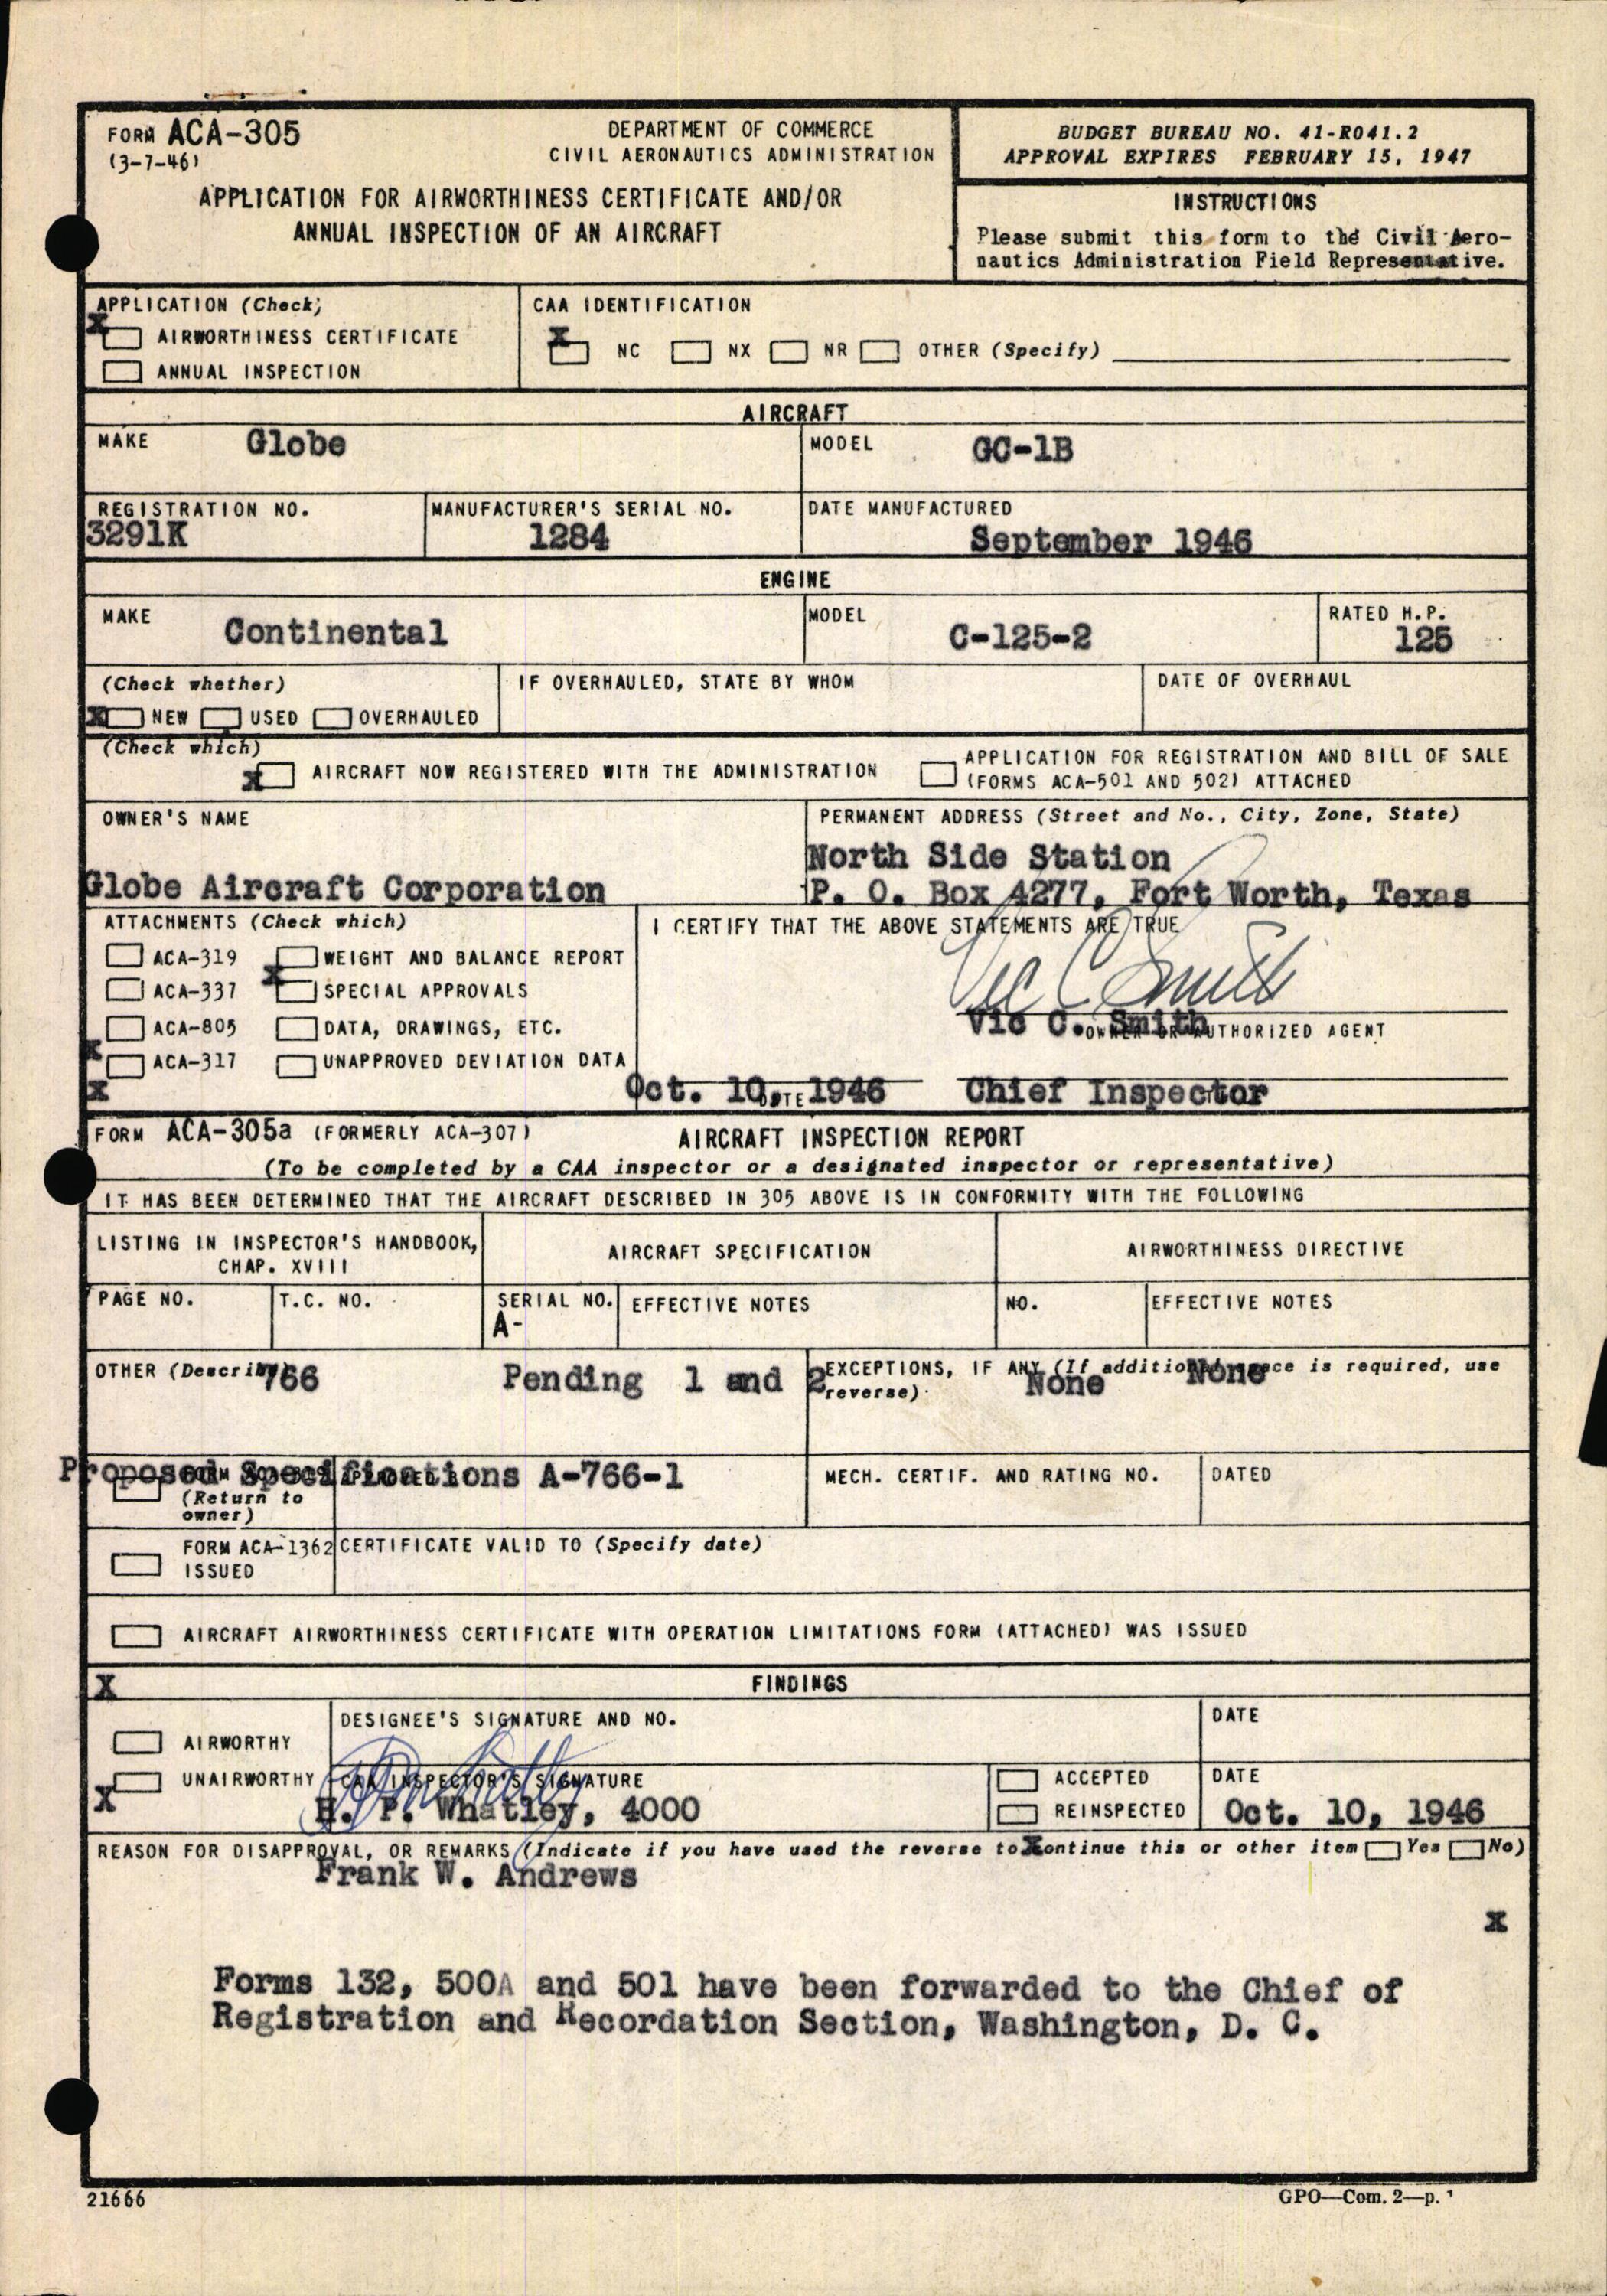 FORM ACA-305
(3-7-46)
DEPARTMENT OF COMMERCE
CIVIL AERONAUTICS ADMINISTRATION
APPLICATION FOR AIRWORTHINESS CERTIFICATE AND/OR
ANNUAL INSPECTION OF AN AIRCRAFT
BUDGET BUREAU NO. 41-R041.2
APPROVAL EXPIRES FEBRUARY 15, 1947
INSTRUCTIONS
Please submit this form to the Civil Aero-
nautics Administration Field Representative.
APPLICATION (Check)
X AIRWORTHINESS CERTIFICATE
ANNUAL INSPECTION
CAA IDENTIFICATION
X NC NX NR OTHER (Specify)
AIRCRAFT
MAKE Globe
MODEL GC-1B
REGISTRATION NO.
3291K
MANUFACTURER'S SERIAL NO.
1284
DATE MANUFACTURED
September 1946
ENGINE
MAKE Continental
MODEL C-125-2
RATED H.P.
125
(Check whether)
X NEW USED OVERHAULED
IF OVERHAULED, STATE BY WHOM
DATE OF OVERHAUL
(Check which)
X AIRCRAFT NOW REGISTERED WITH THE ADMINISTRATION
APPLICATION FOR REGISTRATION AND BILL OF SALE
(FORMS ACA-501 AND 502) ATTACHED
OWNER'S NAME
Globe Aircraft Corporation
PERMANENT ADDRESS (Street and No., City, Zone, State)
North Side Station
P. O. Box 4277, Fort Worth, Texas
ATTACHMENTS (Check which)
ACA-319 WEIGHT AND BALANCE REPORT
ACA-337 X SPECIAL APPROVALS
ACA-805 DATA, DRAWINGS, ETC.
X ACA-317 UNAPPROVED DEVIATION DATA
X
I CERTIFY THAT THE ABOVE STATEMENTS ARE TRUE
Vic C Smith
Vic C. Smith
OWNER OR AUTHORIZED AGENT
Oct. 10, 1946 Chief Inspector
DATE
FORM ACA-305a (FORMERLY ACA-307)
AIRCRAFT INSPECTION REPORT
(To be completed by a CAA inspector or a designated inspector or representative)
IT HAS BEEN DETERMINED THAT THE AIRCRAFT DESCRIBED IN 305 ABOVE IS IN CONFORMITY WITH THE FOLLOWING
LISTING IN INSPECTOR'S HANDBOOK,
CHAP. XVIII
AIRCRAFT SPECIFICATION
AIRWORTHINESS DIRECTIVE
PAGE NO.
T.C. NO.
SERIAL NO.
A-
EFFECTIVE NOTES
NO.
EFFECTIVE NOTES
OTHER (Describe)
766 Pending 1 and 2
EXCEPTIONS, IF ANY (If additional space is required, use
reverse).
None None
Proposed Specifications A-766-1
FORM
(Return to
owner)
MECH. CERTIF. AND RATING NO.
DATED
FORM ACA-1362
ISSUED
CERTIFICATE VALID TO (Specify date)
AIRCRAFT AIRWORTHINESS CERTIFICATE WITH OPERATION LIMITATIONS FORM (ATTACHED) WAS ISSUED
X FINDINGS
AIRWORTHY
DESIGNEE'S SIGNATURE AND NO.
DATE
X UNAIRWORTHY
CAA INSPECTOR'S SIGNATURE
H. P. Whatley, 4000
ACCEPTED
REINSPECTED
DATE
Oct. 10, 1946
REASON FOR DISAPPROVAL, OR REMARKS (Indicate if you have used the reverse to continue this or other item Yes No)
X
Frank W. Andrews
X
Forms 132, 500A and 501 have been forwarded to the Chief of
Registration and Recordation Section, Washington, D. C.
21666
GPO—Com. 2—p.